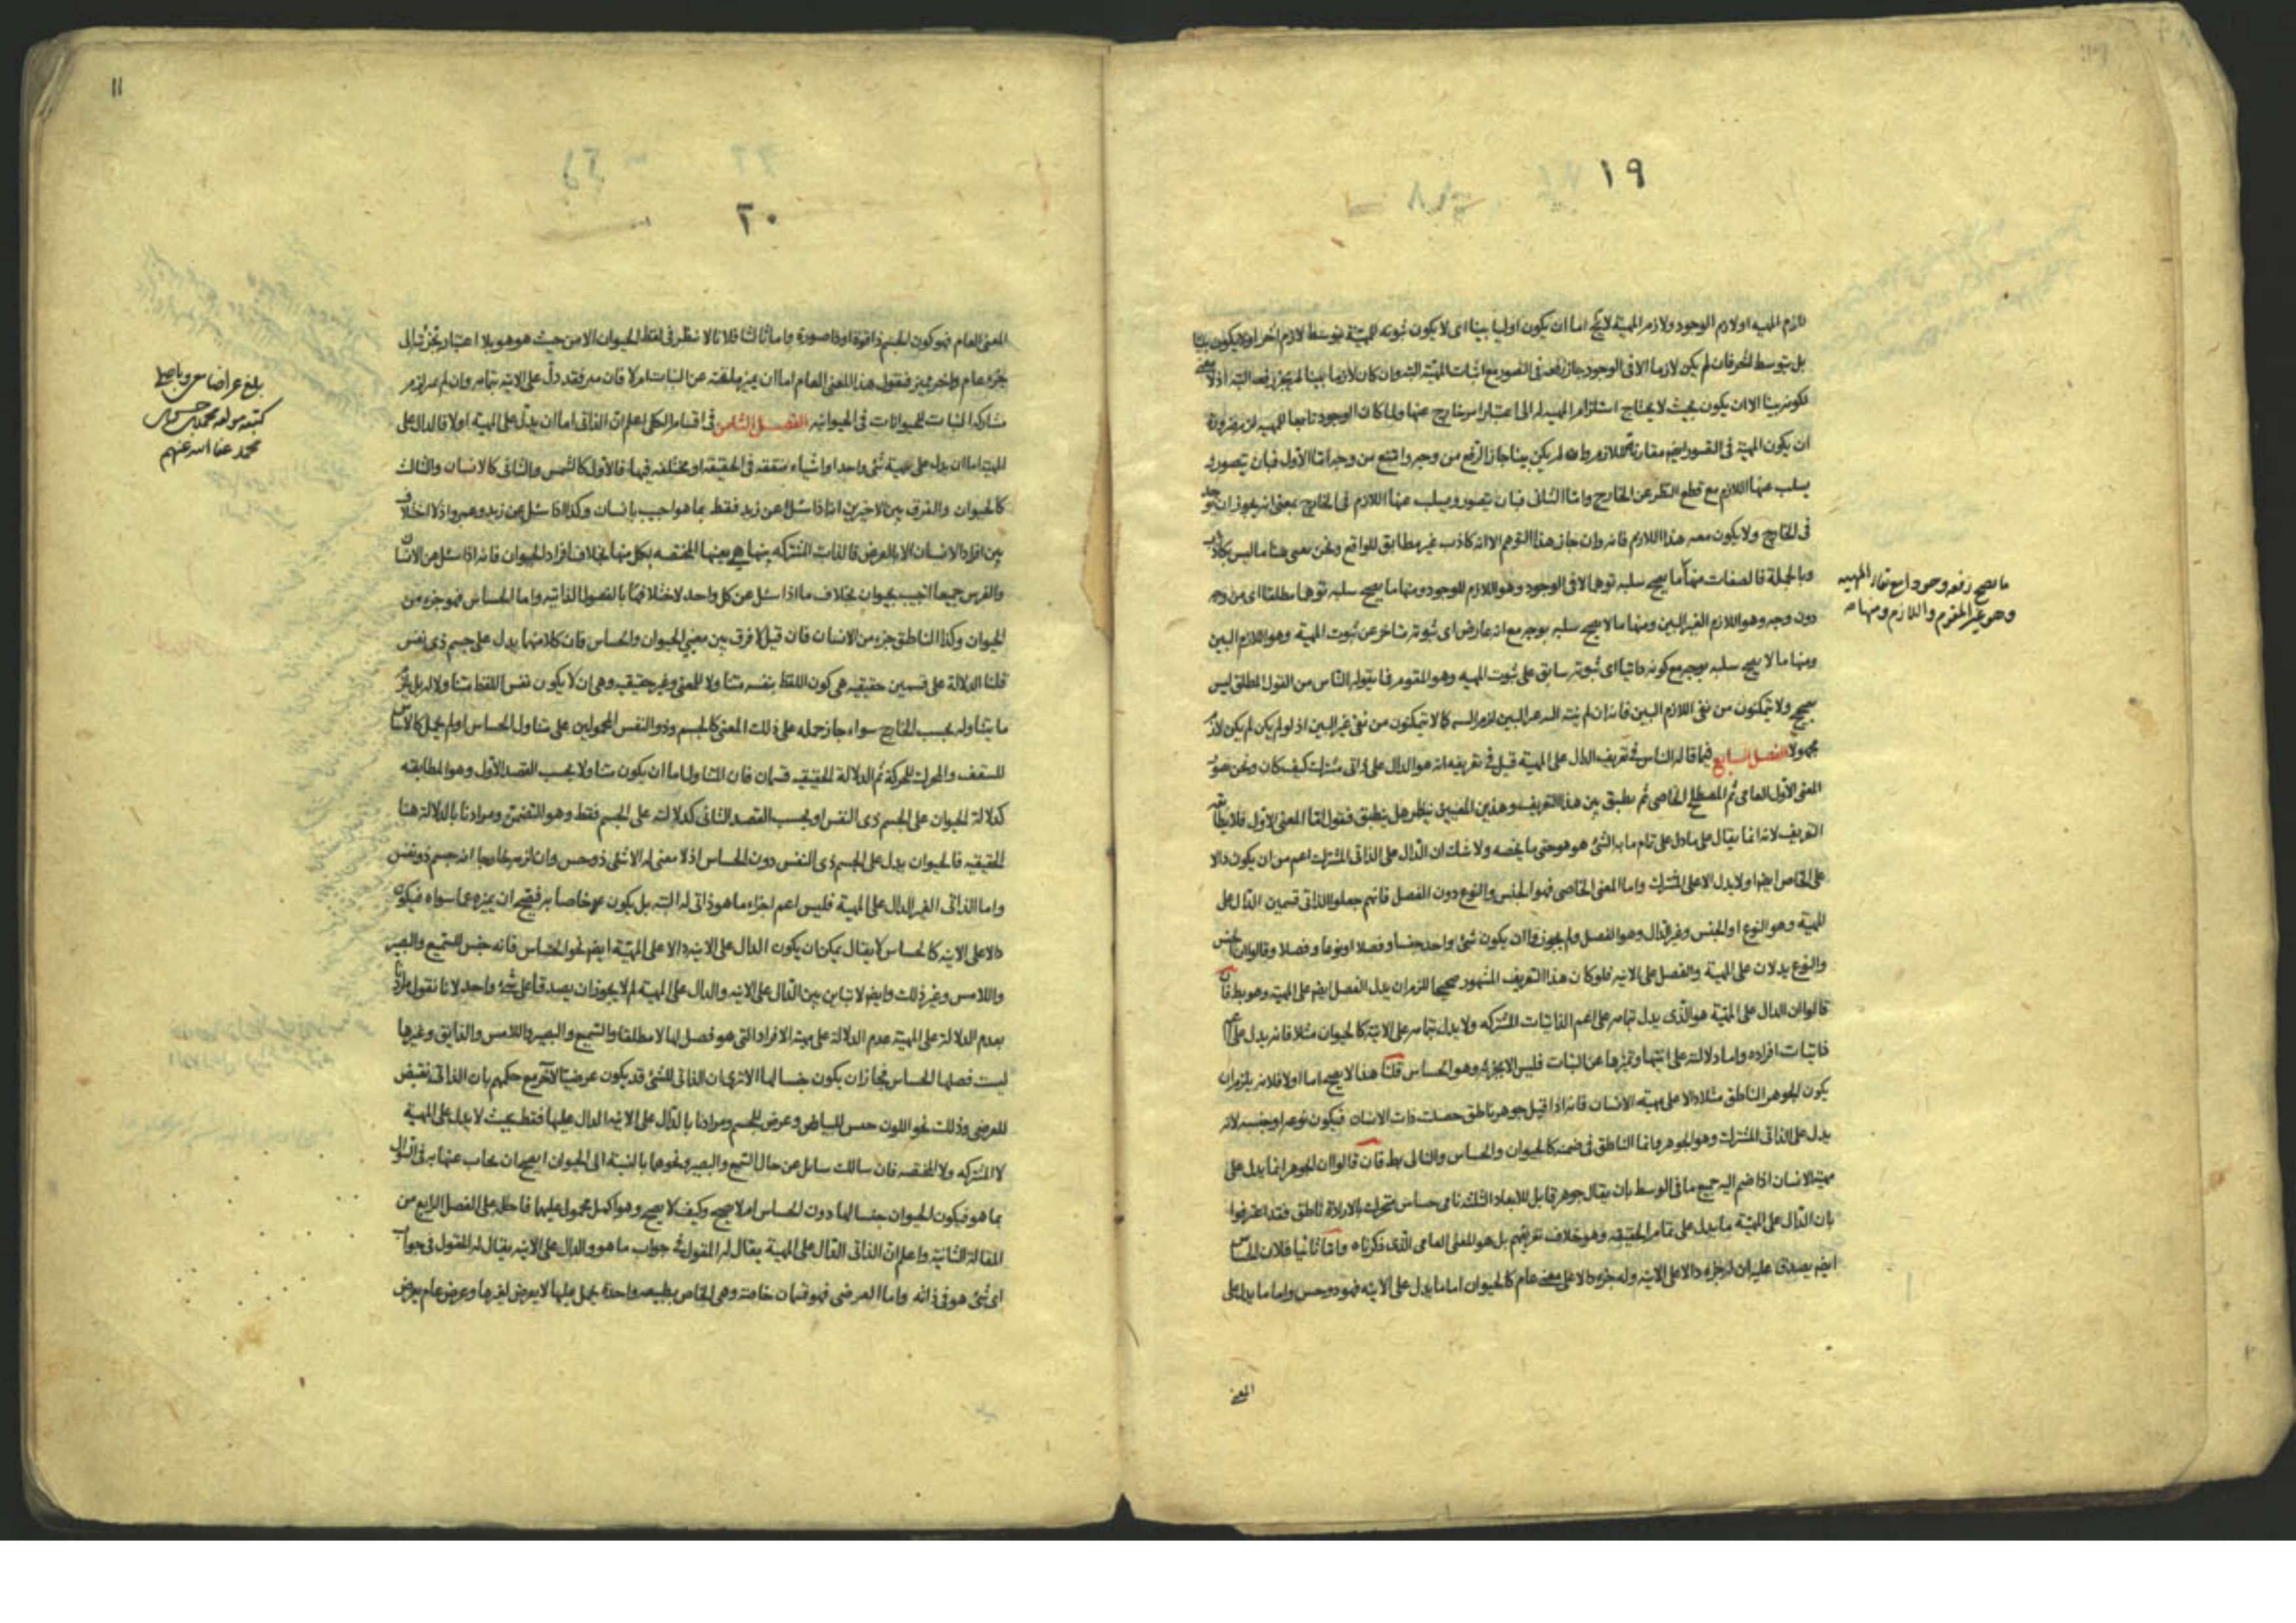 ١٩
لازم المهية اولازم الوجود ولازم المهية لايخ اما ان يكون اوليا بينا اى لا يكون ثبوته للمهية بتوسط لازم اخر اولا يكون
بل بتوسط اخر فان لم يكن لازما الا فى الوجود جاز رفعه فى التصور مع اثبات المهية البتة وان كان لازما بينا لم يجز رفعه البتة اذ لا
لكونه بينا الا ان يكون بحيث لا يحتاج استلزام المهية له الى اعتبار امر خارج عنها ولما كان الوجود تابعا للمهية لزم ضرورة
ان يكون المهية فى التصور ايضا مقارنة للازم وان لم يكن بينا جاز الرفع من وجه وامتنع من وجه اما الاول فبان يتصور
يسلب عنها اللازم مع قطع النظر عن الخارج واما الثانى فبان يتصور ويسلب عنها اللازم فى الخارج بمعنى انه يجوز ان يوجد
فى الخارج ولا يكون معه هذا اللازم فانه وان جاز هذا التوهم الا انه كاذب غير مطابق للواقع ونحن نعنى هنا ما ليس بكاذب
وبالجملة فالصفات منها ما يصح سلبه توهما لا فى الوجود وهو اللازم للوجود ومنها ما يصح سلبه توهما مطلقا اى من وجه
دون وجه وهو اللازم الغير البين ومنها ما لا يصح سلبه بوجه مع انه عارض اى ثبوته متاخر عن ثبوت المهية وهو اللازم البين
ومنها ما لا يصح سلبه بوجه مع كونه ذاتيا اى ثبوته سابق على ثبوت المهية وهو المقوم فما يقوله الناس من القول المطلق ليس
بصحيح ولا يتمكنون من نفى اللازم البين فانه ان لم
محمولا الفصل السابع فيما قاله الناس فى تعريف الدال على المهية قيل فى تعريفه انه هو الدال على ذاتى مشترك كيف كان ونحن
المعنى الاول العامى ثم المصطلح الخاصى ثم نطبق بين هذا التعريف وهذين المعنيين لينظر هل ينطبق فنقول اما المعنى الاول فلا
التعريف لانه انما يقال على ما دل على تمام ما به الشئ هو هو حتى ما يخصه ولا شك ان الدال على الذاتى المشترك اعم من ان يكون دالا
على الخاص ايضا اولا يدل الا على المشترك واما المعنى الخاصى فهو الجنس والنوع دون الفصل فانهم جعلوا الذاتى قسمين الدال على
المهية وهو النوع او الجنس وغير الدال وهو الفصل ولم يجوزوا ان يكون شئ واحد جنسا وفصلا او نوعا وفصلا وقالوا ان الجنس
والنوع يدلان على المهية والفصل على الانية فلو كان هذا التعريف المشهور صحيحا للزم ان يدل الفصل ايضا على المهية وهو بط فان
قالوا ان الدال على المهية هو الذى يدل بتمامه على اعم الذاتيات المشتركة ولا يدل بتمامه على الانية كالحيوان مثلا فانه يدل على
ذاتيات افراده واما دلالته على انيتها وتميزها عن النبات فليس الا بجزئه وهو الحساس قلنا هذا لا يصح اما اولا فلانه يلزم ان
يكون الجوهر الناطق مثلا دالا على مهية الانسان فانه اذا قيل جوهر ناطق حصلت ذات الانسان فيكون نوعه او جنسه لانه
يدل على الذاتى المشترك وهو الجوهر وانما الناطق فى ضمنه كالحيوان والحساس والتالى بط فان قالوا ان الجوهر انما يدل على
مهية الانسان اذا ضم اليه جميع ما فى الوسط بان يقال جوهر قابل للابعاد الثلثة نامى حساس متحرك بالارادة ناطق فقد اعترفوا
بان الدال على المهية ما يدل على تمام الحقيقة وهو خلاف تعريفهم بل هو المعنى العامى الذى ذكرناه واما ثانيا فلان الحساس
ايضا يصدق عليه ان له جزء دالا على الانية وله جزء دالا على معنى عام كالحيوان اما ما يدل على الانية فهو ذو حس واما ما يدل على
المعنى
ما يصح رفعه وجودا مع بقاء المهية
وهو غير المقوم واللازم ومنها
١١
٢٠
المعنى العام فهو كون الجسم ذا قوة او ذا صورة واما ثالثا فلانا لا ننظر فى لفظ الحيوان الا من حيث هو هو بلا اعتبار الى
جزء عام واخر مميز فنقول هذا المعنى العام اما ان يميز ما تحته عن النبات ام لا فان ميز فقد دل على الانية بتمامه وان لم يميز لزم
مشاركة النبات للحيوانات فى الحيوانية الفصل الثامن فى اقسام الكلى اعلم ان الذاتى اما ان يدل على المهية اولا فالدال على
المهية اما ان يدل على مهية شئ واحد او اشياء متفقة فى الحقيقة او مختلفة فيها فالاول كالشمس والثانى كالانسان والثالث
كالحيوان والفرق بين الاخيرين انا اذا سئل عن زيد فقط بما هو اجيب بانسان وكذا اذا سئل عن زيد وعمرو اذ لا اختلاف
بين افراد الانسان الا بالعرض فالذات المشتركة بينها هى بعينها المختصة بكل منها بخلاف افراد الحيوان فانه اذا سئل عن الانسان
والفرس جميعا اجيب بحيوان بخلاف ما اذا سئل عن كل واحد لاختلافهما بالفصول الذاتية واما الحساس فهو جزء من
الحيوان وكذا الناطق جزء من الانسان فان قيل لا فرق بين معنيى الحيوان والحساس فان كلا منهما يدل على جسم ذى نفس
قلنا الدلالة على قسمين حقيقيه هى كون اللفظ بنفسه متناولا للمعنى وغير حقيقيه وهى ان لا يكون نفس اللفظ متناولا له بل
ما يتناوله بحسب الخارج سواء جاز حمله على ذلك المعنى كالجسم وذو النفس المحمولين على متناول الحساس او لم يحمل كالاساس
للسقف والمحرك للحركة ثم الدلالة الحقيقيه قسمان فان المتناول اما ان يكون متناولا بحسب القصد الاول وهو المطابقة
كدلالة الحيوان على الجسم ذى النفس او بحسب القصد الثانى كدلالته على الجسم فقط وهو التضمن ومرادنا بالدلالة هنا
الحقيقيه فالحيوان يدل على الجسم ذى النفس دون الحساس اذ لا معنى له الا شئ ذو حس وان لزمه خارجا انه جسم ذو نفس
واما الذاتى الغير الدال على المهية فليس اعم اجزاء ما هو ذاتى له البتة بل يكون خاصا به فيصح ان يميزه عما سواه فيكون
دالا على الانية كالحساس لا يقال يمكن ان يكون الدال على الانية دالا على المهية ايضا نحو الحساس فانه جنس للسميع والبصير
واللامس وغير ذلك وايضا لا تباين بين الدال على الانية والدال على المهية لم لا يجوز ان يصدقا على شئ واحد لانا نقول مرادنا
بعدم الدلالة على المهية عدم الدلالة على مهية الافراد التى هو فصل لها لا مطلقا والسميع والبصير واللامس والذايق وغيرها
ليست فصلها الحساس فجاز ان يكون جنسا لها الا ترى ان الذاتى للشئ قد يكون عرضيا لاخر مع حكمهم بان الذاتى نقيض
للعرضى وذلك نحو اللون جنس للبياض وعرض للجسم ومرادنا بالدال على الانية الدال عليها فقط بحيث لا يدل على المهية
لا المشتركة ولا المختصة فان سالك سايل عن حال السميع والبصير ونحوها بالنسبة الى الحيوان ايصح ان يجاب عنها به فى السؤال
بما هو فيكون الحيوان جنسا لها دون الحساس ام لا يصح وكيف لا يصح وهو اكمل محمول عليها فاحله على الفصل الرابع من
المقالة الثانية واعلم ان الذاتى الدال على المهية يقال له المقول فى جواب ما هو والدال على الانية يقال له المقول فى جواب
اى شئ هو فى ذاته واما العرضى فهو قسمان خاصة وهى الخاص بطبيعه واحدة يحمل عليها لا يعرض لغيرها وعرض عام يعرض
بلغ عراضا
كتبه
محمد عفا الله عنهم